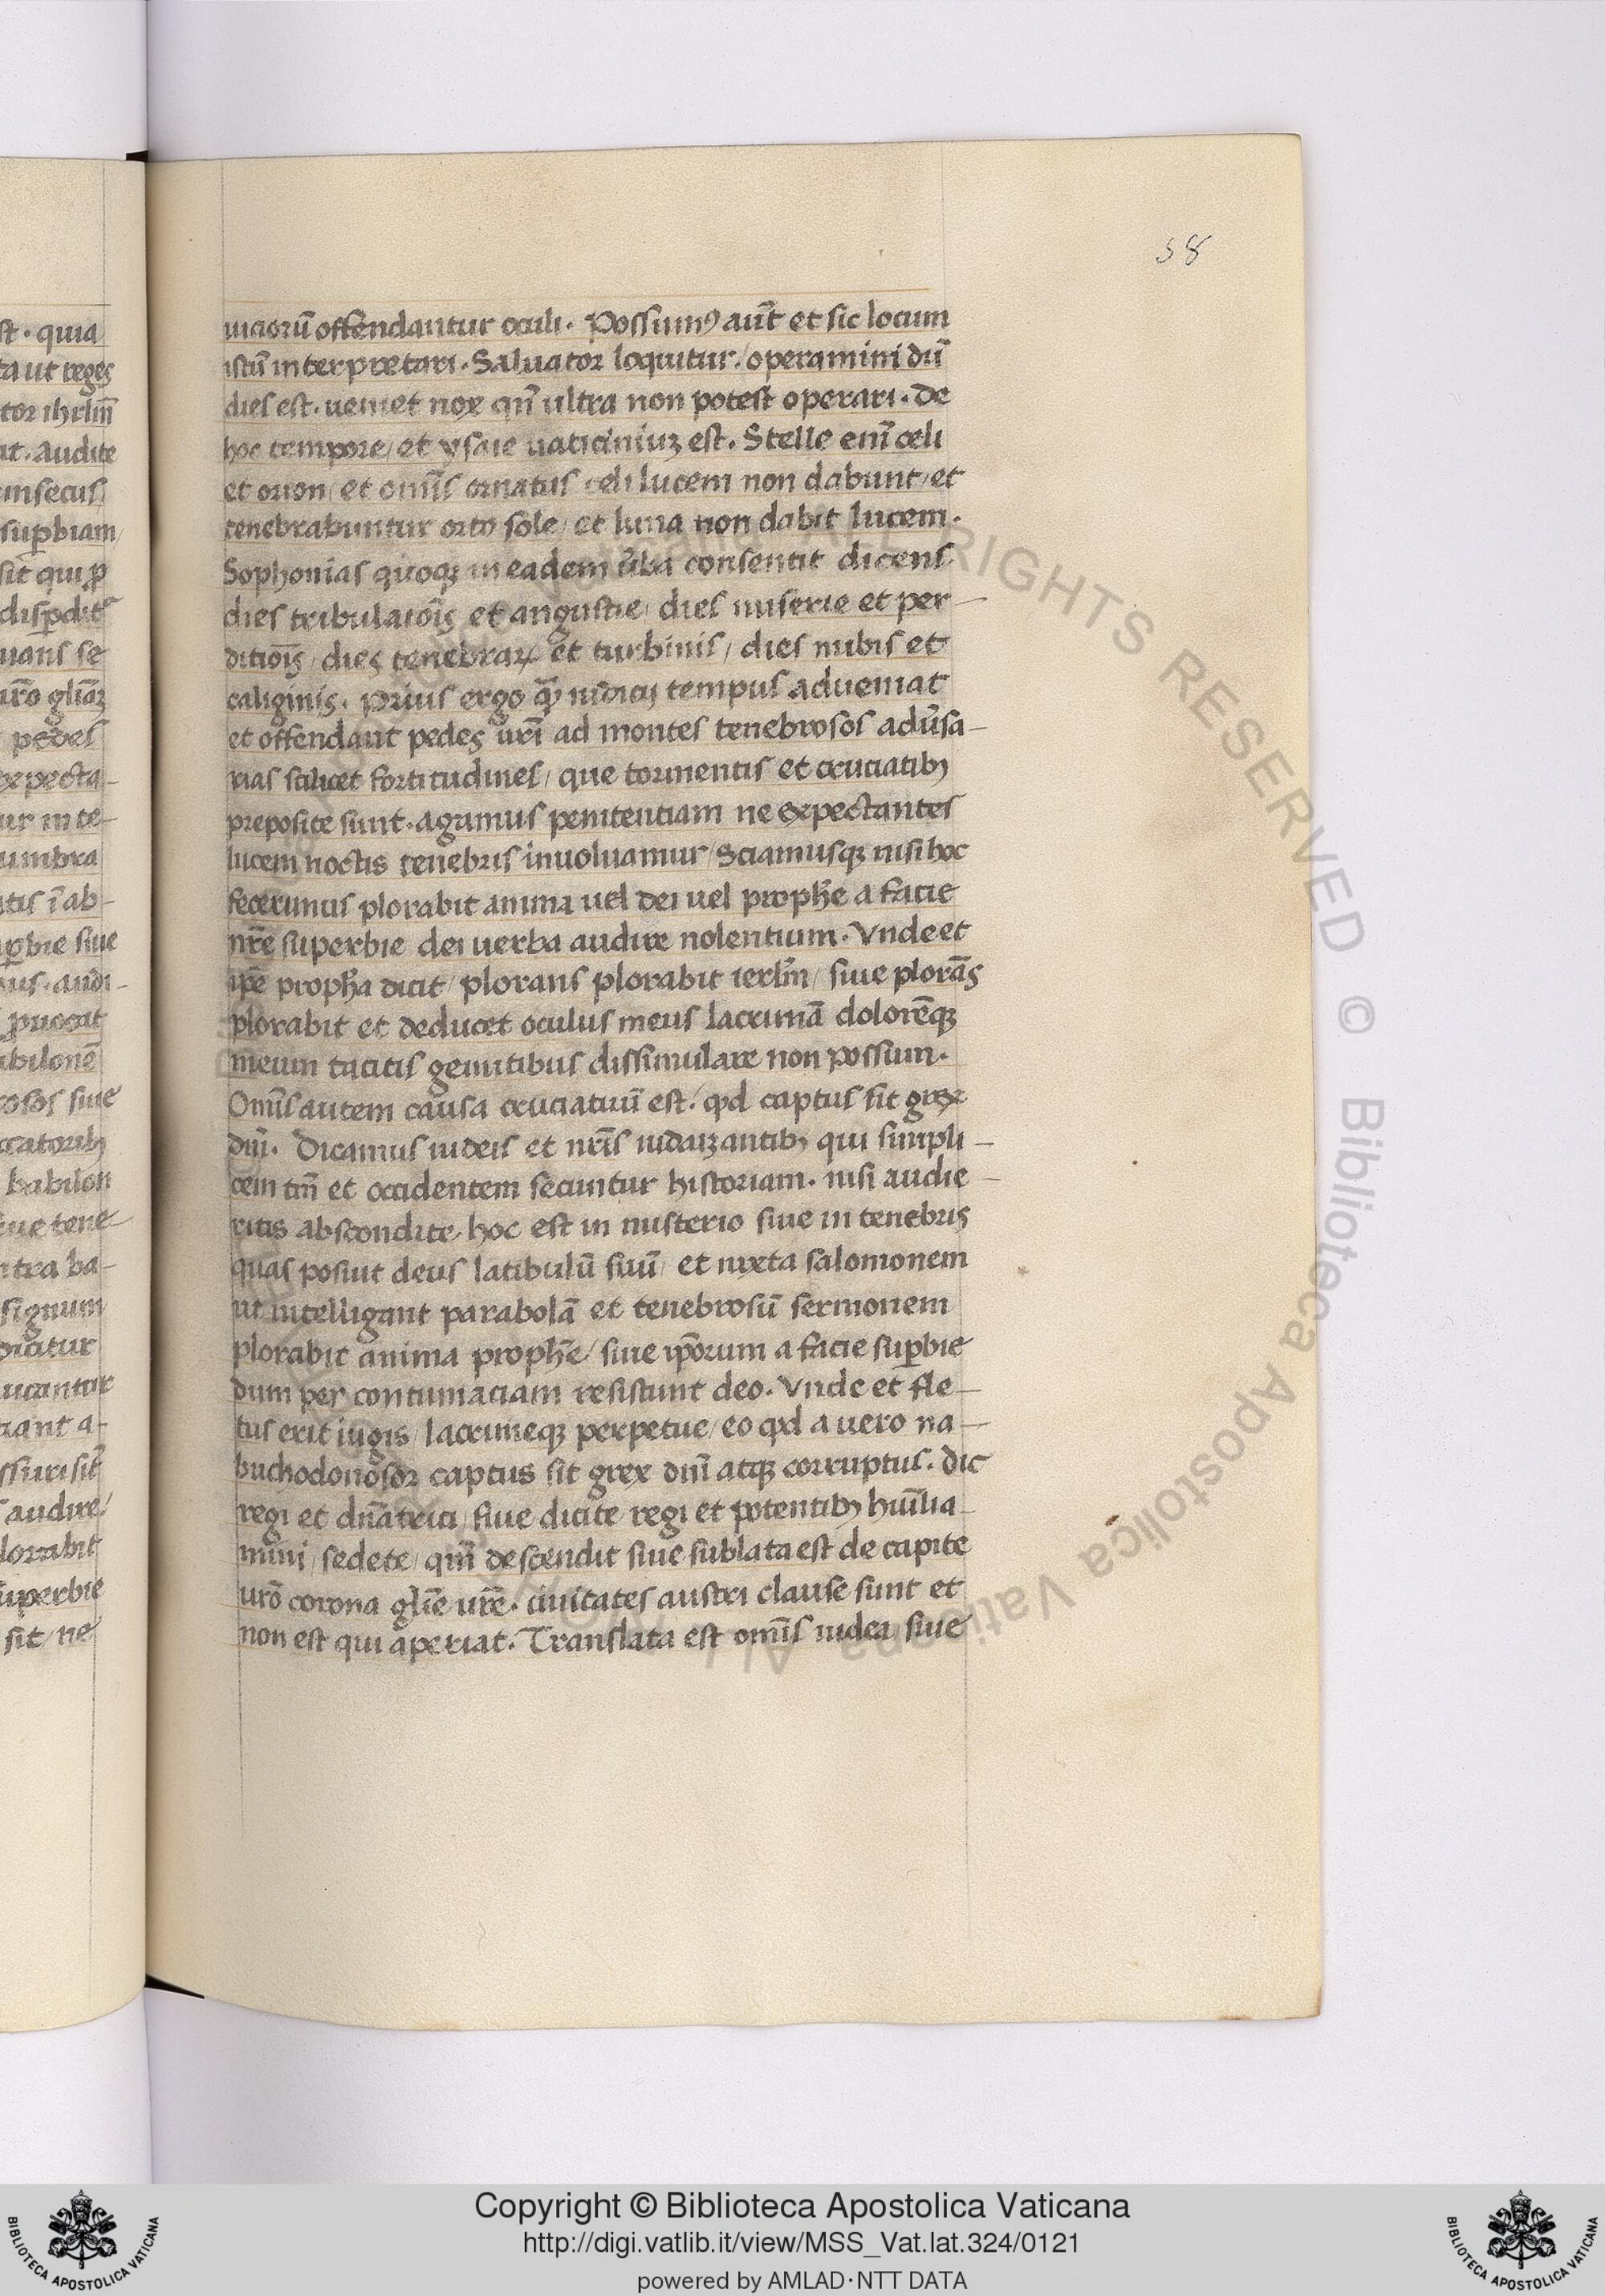 58
uiciorū offendantur oculi. Possumꝰ aūt et sic locum
istū interpretari. Saluator loquitur / operamini dū
dies est. ueniet nox qn̄ ultra non potest operari. De
hoc tempore / et ysaie uaticiniuꝫ est. Stelle enī celi
et orion / et omīs ornatus celi lucem non dabunt / et
tenebrabuntur orto sole / et luna non dabit lucem.
Sophonias quoqꝫ in eadem ūba consentit dicens
dies tribulatōis et angustie / dies miserie et per-
ditiōis / dies tenebraꝝ et turbinis / dies nubis et
caliginis. Prius ergo qꝫ̄ iudicij tempus adueniat
et offendant pedes urī ad montes tenebrosos adūsa-
rias scilicet fortitudines / que tormentis et cruciatibꝫ
preposite sunt. agamus penitentiam ne expectantes
lucem noctis tenebris inuoluamur / Sciamusqꝫ nisi hoc
fecerimus plorabit anima uel dei uel prophē a facie
nrē superbie dei uerba audire nolentium. Vnde et
ipē propha dicit / plorans plorabit ierlm̄ / siue plorās
plorabit et deducet oculus meus lacrimā dolorēqꝫ
meum tacitis gemitibus dissimulare non possum.
Omīs autem causa cruciatuū est / qd captus sit grex
dn̄i. Dicamus iudeis et nrīs iudaizantibꝫ qui simpli-
cem tm̄ et occidentem secuntur historiam. nisi audie-
ritis abscondite / hoc est in misterio siue in tenebris
quas posuit deus latibulū suū / et iuxta salomonem
ut intelligant parabolā et tenebrosū sermonem
plorabit anima prophē / siue ip̄orum a facie suꝑbie
dum per contumaciam resistunt deo. Vnde et fle-
tus erit iugis / lacrimeqꝫ perpetue / eo qd a uero na-
buchodonosor captus sit grex dn̄i atqꝫ corruptus. dic
regi et dn̄atrici / siue dicite regi et potentibꝫ humīlia-
mini / sedete / qm̄ descendit siue sublata est de capite
urō corona glīe urē. ciuitates austri clause sunt et
non est qui aperiat. Translata est omīs iudea / siue
Copyright © Biblioteca Apostolica Vaticana
http://digi.vatlib.it/view/MSS_Vat.lat.324/0121
powered by AMLAD·NTT DATA